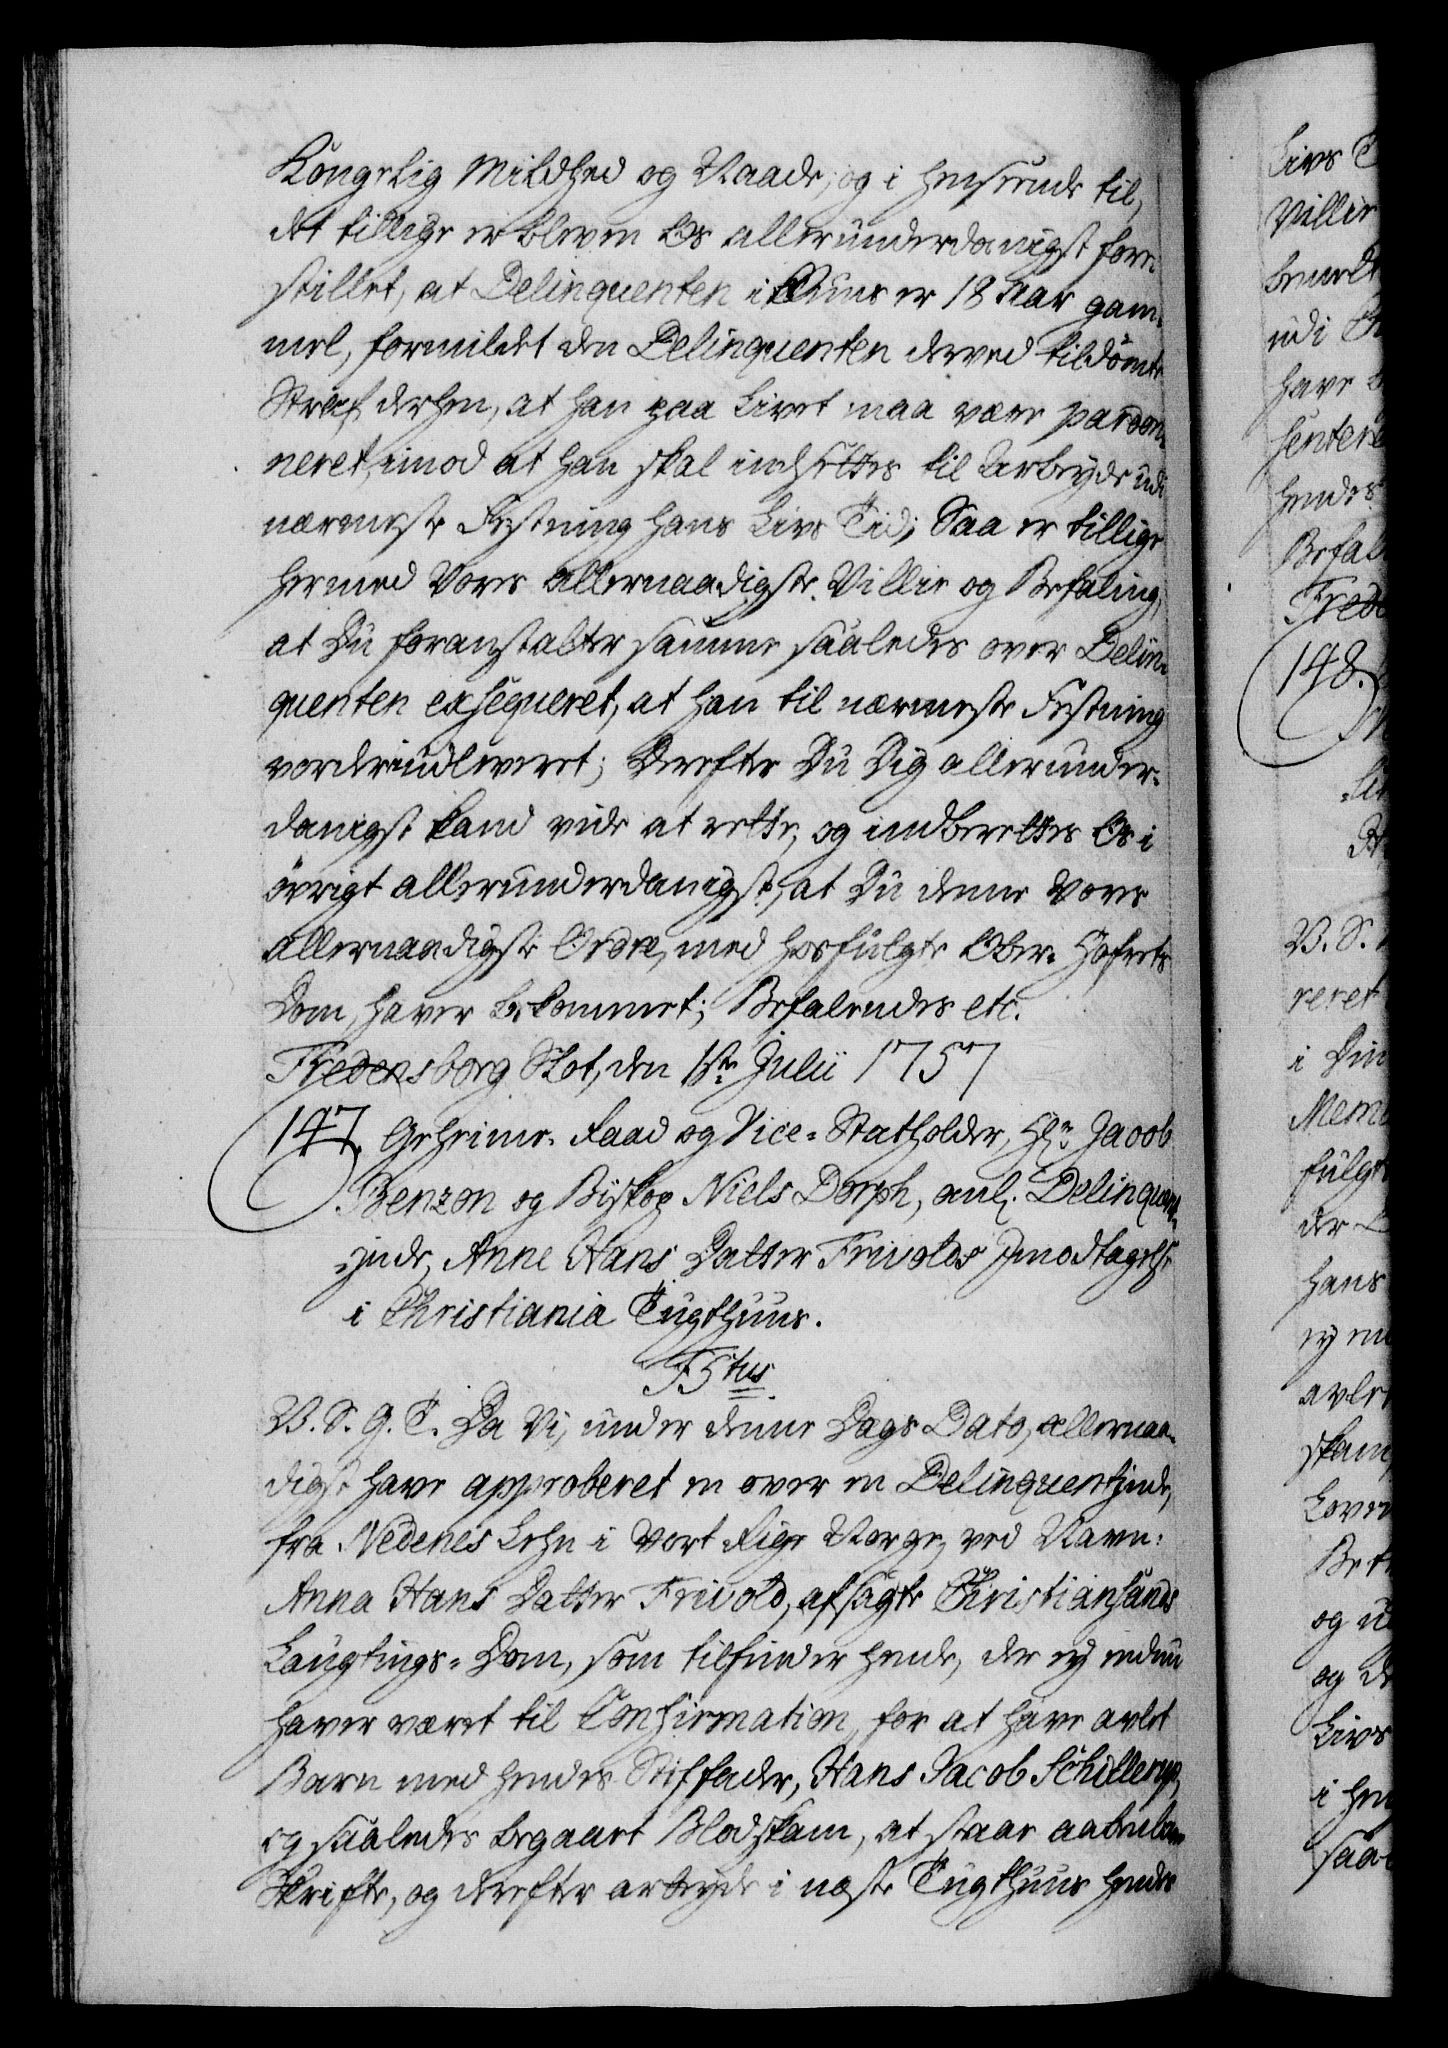 Kongelig Mildhed og Naade, og i henseende til,
det tillige er bleven Os allerunderdanigst fore-
stillet, at Delinquenten ikkuns er 18 Aar gam-
mel, formildet den Delinquenten derved tildömte
Straf derhen, at han paa Livet maa være pardon-
neret, imod at han skal indsettes til Arbeyde udi
nærmeste Festning hans Livs Tid; Saa er tillige
hermed Vores allernaadigste Villie og Befaling,
at Du foranstalter samme saaledes over Delin-
quenten exseqveret, at han til nærmeste Festning
vorder indleveret; Derefter Du Dig allerunder-
danigst kand vide at rette, og indberettes Os i
övrigt allerunderdanigst, at Du denne Vores
allernaadigste Ordre, med hosfulgte Ober-Hofrets
Dom, haver bekommet; Befalendes etc.
Fredensborg Slot, den 1ste Julii 1757
147. Geheime-Raad og Vice-Statholder, Hr. Jacob
Benzon og Biskop Niels Dorph, anl. Delinquent-
inde, Anne Hans Datter Frivolds Imodtagelse
i Christiania Tugthuus.
F5tus
V. S. G. T. Da Vi, under denne Dags Dato, allernaa-
digst have approberet en over en Delinquentinde,
fra Nedenes Lehn i Vort Rige Norge, ved Navn:
Anna Hans Datter Frivold, afsagte Christiansands
Laugtings-Dom, som tilfinder hende, der ey endnu
haver været til Confirmation, for at have avlet
Barn med hendes Stiffader, Hans Jacob Schillerup,
og saaledes begaaet Blodskam, at staae aabenbare
Skrifte, og derefter arbeyde i neste Tugthuus hendes
Livs T
Villie
bemelte
udi
have
senter
hendes
Befal
Frede
148.
V. S.
reret
i
Mem
fulgt
der
hans
ey
avlet
skam,
Loven
Bet
og
og de
Livs
i hen
saa